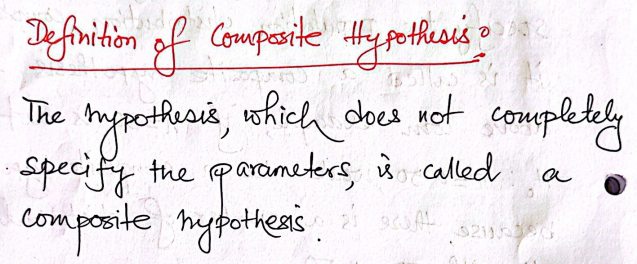 Definition of Composite Hypothesis:
The hypothesis, which does not completely
specify the parameters, is called a
composite hypothesis.